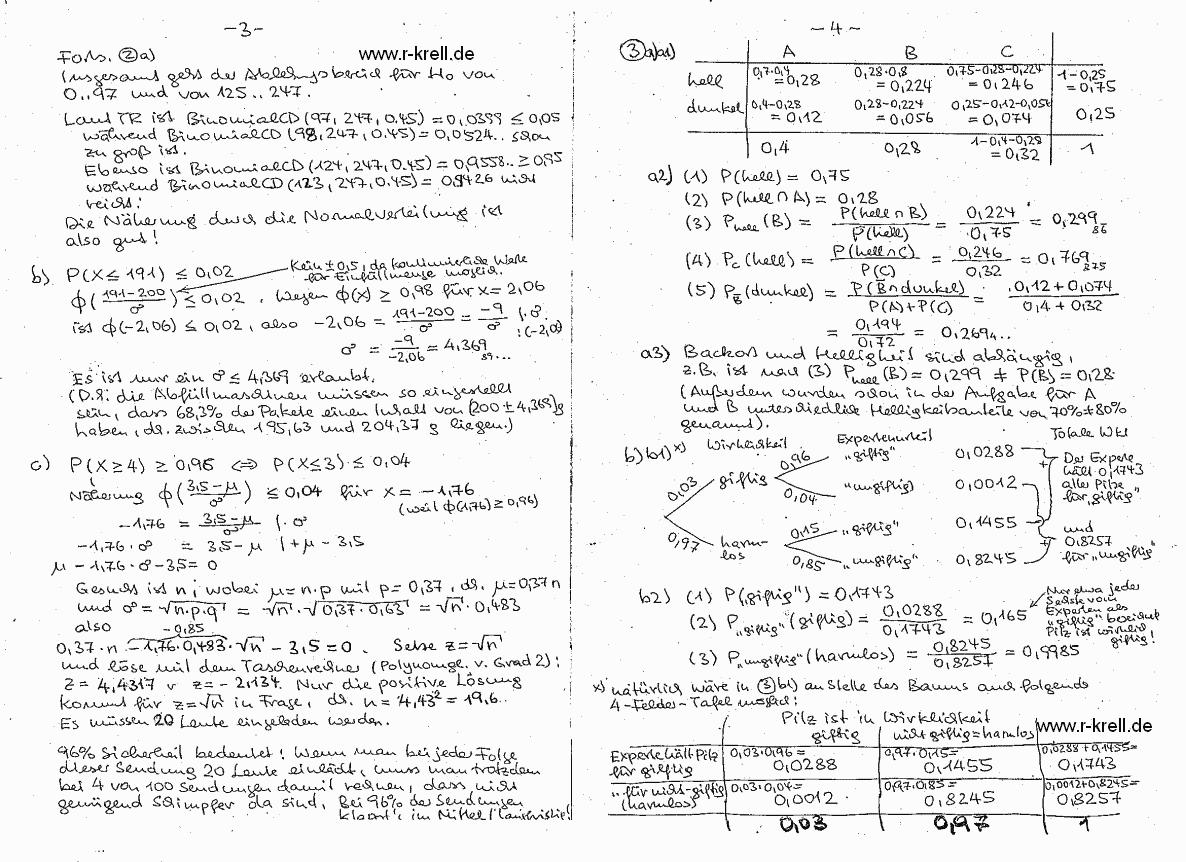 -3-
www.r-krell.de
Forts. ②a)
Insgesamt geht der Ablehnungsbereich für H₀ von
0..97 und von 125..247.
Laut TR ist BinomialCD(97, 247, 0.45) = 0,0399 ≤ 0,05
während BinomialCD(98, 247, 0.45) = 0,0524.. schon
zu groß ist.
Ebenso ist BinomialCD(124, 247, 0.45) = 0,9558.. ≥ 0,95
während BinomialCD(123, 247, 0.45) = 0,9426 nicht
reicht!
Die Näherung durch die Normalverteilung ist
also gut!
b) P(X ≤ 191) ≤ 0,02
Kein ± 0,5, da kontinuierliche Werte
für Einfüllmenge möglich.
ϕ((191-200)/σ) ≤ 0,02. Wegen ϕ(x) ≥ 0,98 für x = 2,06
ist ϕ(-2,06) ≤ 0,02, also -2,06 = (191-200)/σ = -9/σ |·σ
:(-2,06)
σ = -9/-2,06 = 4,369
Es ist nur ein σ ≤ 4,369 erlaubt.
(D.h. die Abfüllmaschinen müssen so eingestellt
sein, dass 68,3% der Pakete einen Inhalt von (200 ± 4,369)g
haben, d.h. zwischen 195,63 und 204,37 g liegen.)
c) P(X ≥ 4) ≥ 0,96 ⇔ P(X ≤ 3) ≤ 0,04
Näherung ϕ((3,5-μ)/σ) ≤ 0,04 für x = -1,76
(weil ϕ(1,76) ≥ 0,96)
-1,76 = (3,5-μ)/σ |·σ
-1,76·σ = 3,5-μ |+μ - 3,5
μ - 1,76·σ - 3,5 = 0
Gesucht ist n; wobei μ = n·p mit p = 0,37, d.h. μ = 0,37n
und σ = √(n·p·q) = √n · √(0,37·0,63) = √n · 0,483
also -0,85
0,37·n - 1,76·0,483·√n - 3,5 = 0. Setze z = √n
und löse mit dem Taschenrechner (Polynomgl. v. Grad 2):
z = 4,4317 v z = -2,134. Nur die positive Lösung
kommt für z = √n in Frage, d.h. n = 4,43² = 19,6..
Es müssen 20 Leute eingeladen werden.
96% Sicherheit bedeutet! Wenn man bei jeder Folge
dieser Sendung 20 Leute einlädt, muss man trotzdem
bei 4 von 100 Sendungen damit rechnen, dass nicht
genügend Schimpfer da sind, Bei 96% der Sendungen
klappt's im Mittel
-4-
③a)a1) A B C
hell 0,7·0,4 = 0,28 0,28·0,8 = 0,224 0,75-0,28-0,224 = 0,246 1-0,25 = 0,75
dunkel 0,4-0,28 = 0,12 0,28-0,224 = 0,056 0,25-0,12-0,056 = 0,074 0,25
0,4 0,28 1-0,4-0,28 = 0,32 1
a2) (1) P(hell) = 0,75
(2) P(hell ∩ A) = 0,28
(3) P_hell(B) = P(hell ∩ B)/P(hell) = 0,224/0,75 = 0,299 86
(4) P_C(hell) = P(hell ∩ C)/P(C) = 0,246/0,32 = 0,769 875
(5) P_B̅(dunkel) = P(B̅ ∩ dunkel)/(P(A)+P(C)) = (0,12+0,074)/(0,4+0,32)
= 0,194/0,72 = 0,2694..
a3) Backort und Helligkeit sind abhängig,
z.B. ist nach (3) P_hell(B) = 0,299 ≠ P(B) = 0,28
(Außerdem wurden schon in der Aufgabe für A
und B unterschiedliche Helligkeitsanteile von 70% ≠ 80%
genannt).
b) b1) x) Wirklichkeit Expertenurteil Totale Wkt
0,03 giftig 0,96 „giftig" 0,0288
0,04 „ungiftig) 0,0012
0,97 harmlos 0,15 „giftig" 0,1455
0,85 „ungiftig" 0,8245
Der Experte
hält 0,1743
aller Pilze
für „giftig"
und
0,8257
für „ungiftig"
b2) (1) P(„giftig") = 0,1743
(2) P„giftig"(giftig) = 0,0288/0,1743 = 0,165
Nur etwa jeder
Sechste vom
Experten als
„giftig" bezeichnete
Pilz ist wirklich
giftig!
(3) P„ungiftig"(harmlos) = 0,8245/0,8257 = 0,9985
x) natürlich wäre in ③b1) an Stelle des Baums auch folgende
4-Felder-Tafel möglich:
Pilz ist in Wirklichkeit
www.r-krell.de
giftig nicht giftig = harmlos
Experte hält Pilz für giftig 0,03·0,96 = 0,0288 0,97·0,15 = 0,1455 0,0288+0,1455 = 0,1743
" für nicht-giftig (harmlos) 0,03·0,04 = 0,0012 0,97·0,85 = 0,8245 0,0012+0,8245 = 0,8257
0,03 0,97 1